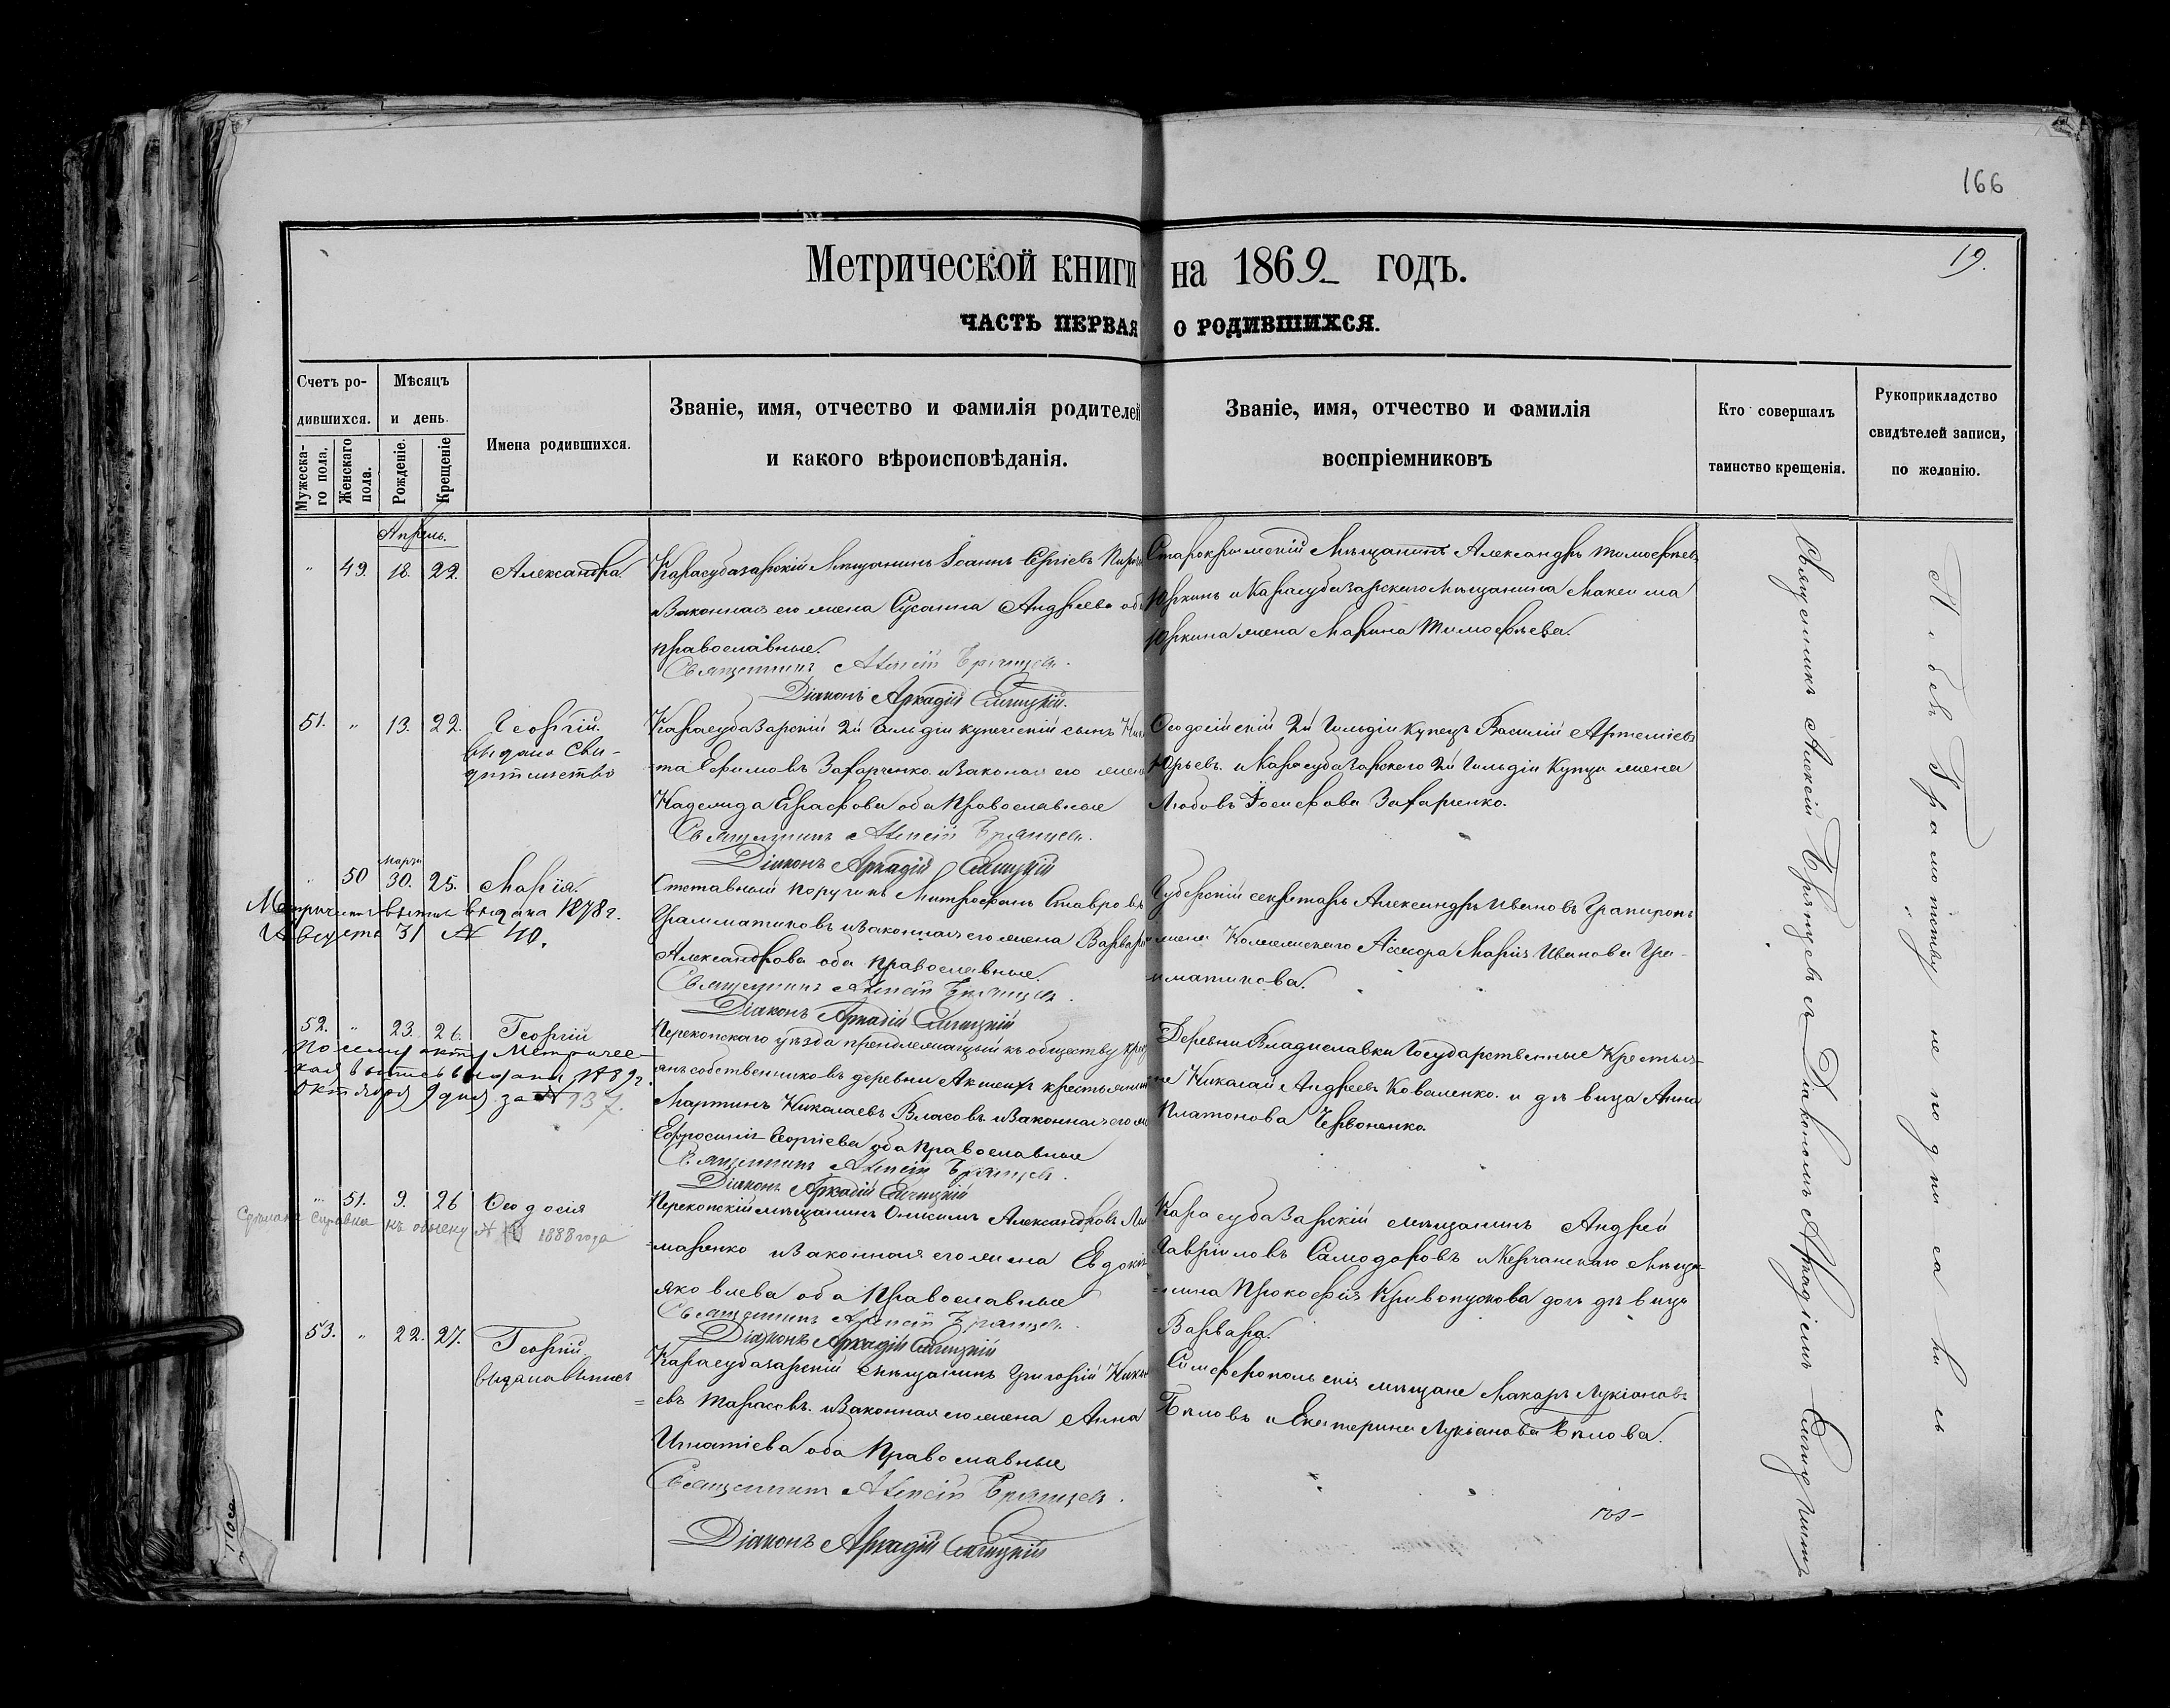 166
19.
Метрической книги на 1869 годъ.
ЧАСТЬ ПЕРВАЯ О РОДИВШИХСЯ.
Счетъ ро-
дившихся.
Мужеска-
го пола.
Женскаго
пола.
Мѣсяцъ
и день.
Рожденіе.
Крещеніе
Имена родившихся.
Званіе, имя, отчество и фамилія родителей
и какого вѣроисповѣданія.
Званіе, имя, отчество и фамилія
воспріемниковъ
Кто совершалъ
таинство крещенія.
Рукоприкладство
свидѣтелей записи,
по желанію.
Апрѣль.
" 49. 18. 22. Александра.
Карасубазарскій Мѣщанинъ Іоаннъ Сергіевъ
и Законная его жена Сусанна Андреева
православные.
Священникъ Алексій Брянцевъ.
Діаконъ Аркадій
Старокрымскій Мѣщанинъ Александръ Тимофѣевъ
Юркинъ и Карасубазарскаго Мѣщанина Максима
Юркина жена Марина Тимофѣева.
51. " 13. 22. Георгій.
выдано Сви-
дѣтельство
Карасубазарскій 2й Гильдіи купеческій сынъ
та Ефимовъ Захарченко и Законная его жена
Надежда Ефрафова оба Православные
Священникъ Алексій Брянцевъ.
Діаконъ Аркадій
Ѳеодосійскій 2й Гильдіи Купецъ Василій Артеміевъ
Юрьевъ. и Карасубазарскаго 2й Гильдіи Купца жена
Любовь Іосифова Захарченко.
Марта
" 50 30. 25. Марія.
выпись выдана 1878 г.
Августа 31 № 40.
Отставный поручикъ Митрофанъ Ставровъ
Грамматиковъ и Законная его жена Варвара
Александрова оба православные.
Священникъ Алексій Брянцевъ.
Діаконъ Аркадій
Губернскій секретарь Александръ Ивановъ
жена Коллежскаго Ассесора Марія Иванова Гра-
мматикова.
52. " 23. 26. Георгій
По сему акту Метричес-
кая выпись выдана
Октября 9 дня за № 137.
Перекопскаго уѣзда принадлежащій къ обществу
анъ собственниковъ деревни крестьянинъ
Мартинъ Николаевъ Власовъ и Законная его
Ефросинія Георгіева оба Православные
Священникъ Алексій Брянцевъ.
Діаконъ Аркадій
Деревни Владиславки Государственные Крестья-
не Николай Андреевъ Коваленко. и дѣвица Анна
Платонова Червоненко.
" 51. 9. 26 Ѳеодосія
Сдѣлана справка къ обыску № 1888 года
Перекопскій мѣщанинъ Онисимъ Александровъ
маренко и Законная его жена Евдокія
Яковлева оба Православные
Священникъ Алексій Брянцевъ.
Діаконъ Аркадій
Карасубазарскій мѣщанинъ Андрей
Гавріиловъ Самодоровъ и Керчанскаго Мѣща-
нина Прокофія Кривопускова дочь дѣвица
Варвара.
53. " 22. 27. Георгій.
выдана выпись
Карасубазарскій мѣщанинъ Григорій
евъ Тарасовъ. и Законная его жена Анна
Игнатіева оба Православные
Священникъ Алексій Брянцевъ.
Діаконъ Аркадій
Симферопольскія мѣщане Макаръ Лукіановъ
Бѣловъ и Екатерина Лукіанова Бѣлова.
Священникъ Алексій Брянцевъ съ Діакономъ Аркадіемъ